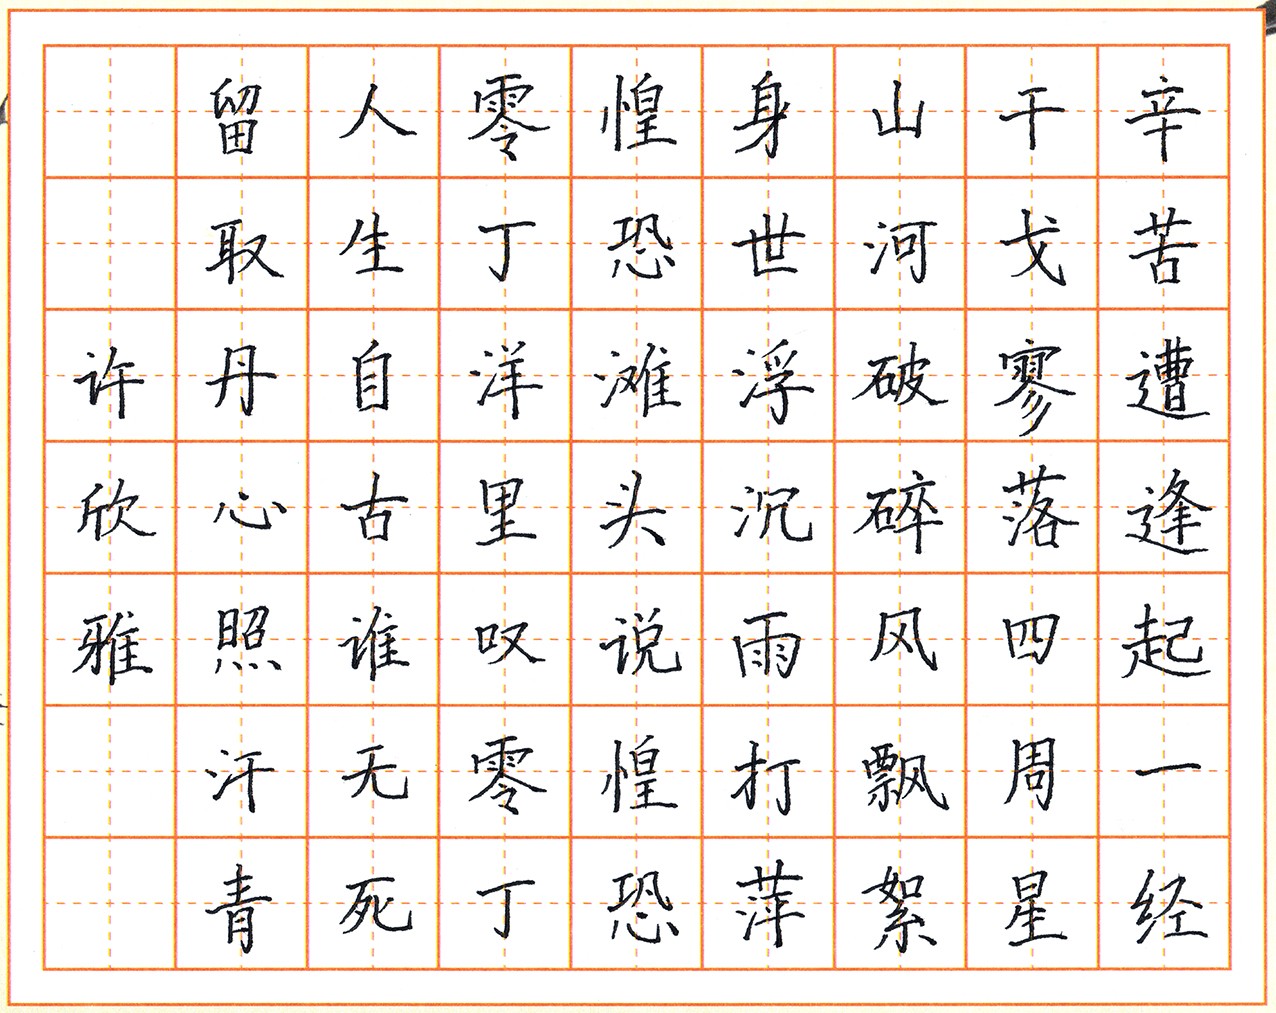 辛苦遭逢起一经
干戈寥落四周星
山河破碎风飘絮
身世浮沉雨打萍
惶恐滩头说惶恐
零丁洋里叹零丁
人生自古谁无死
留取丹心照汗青
许欣雅